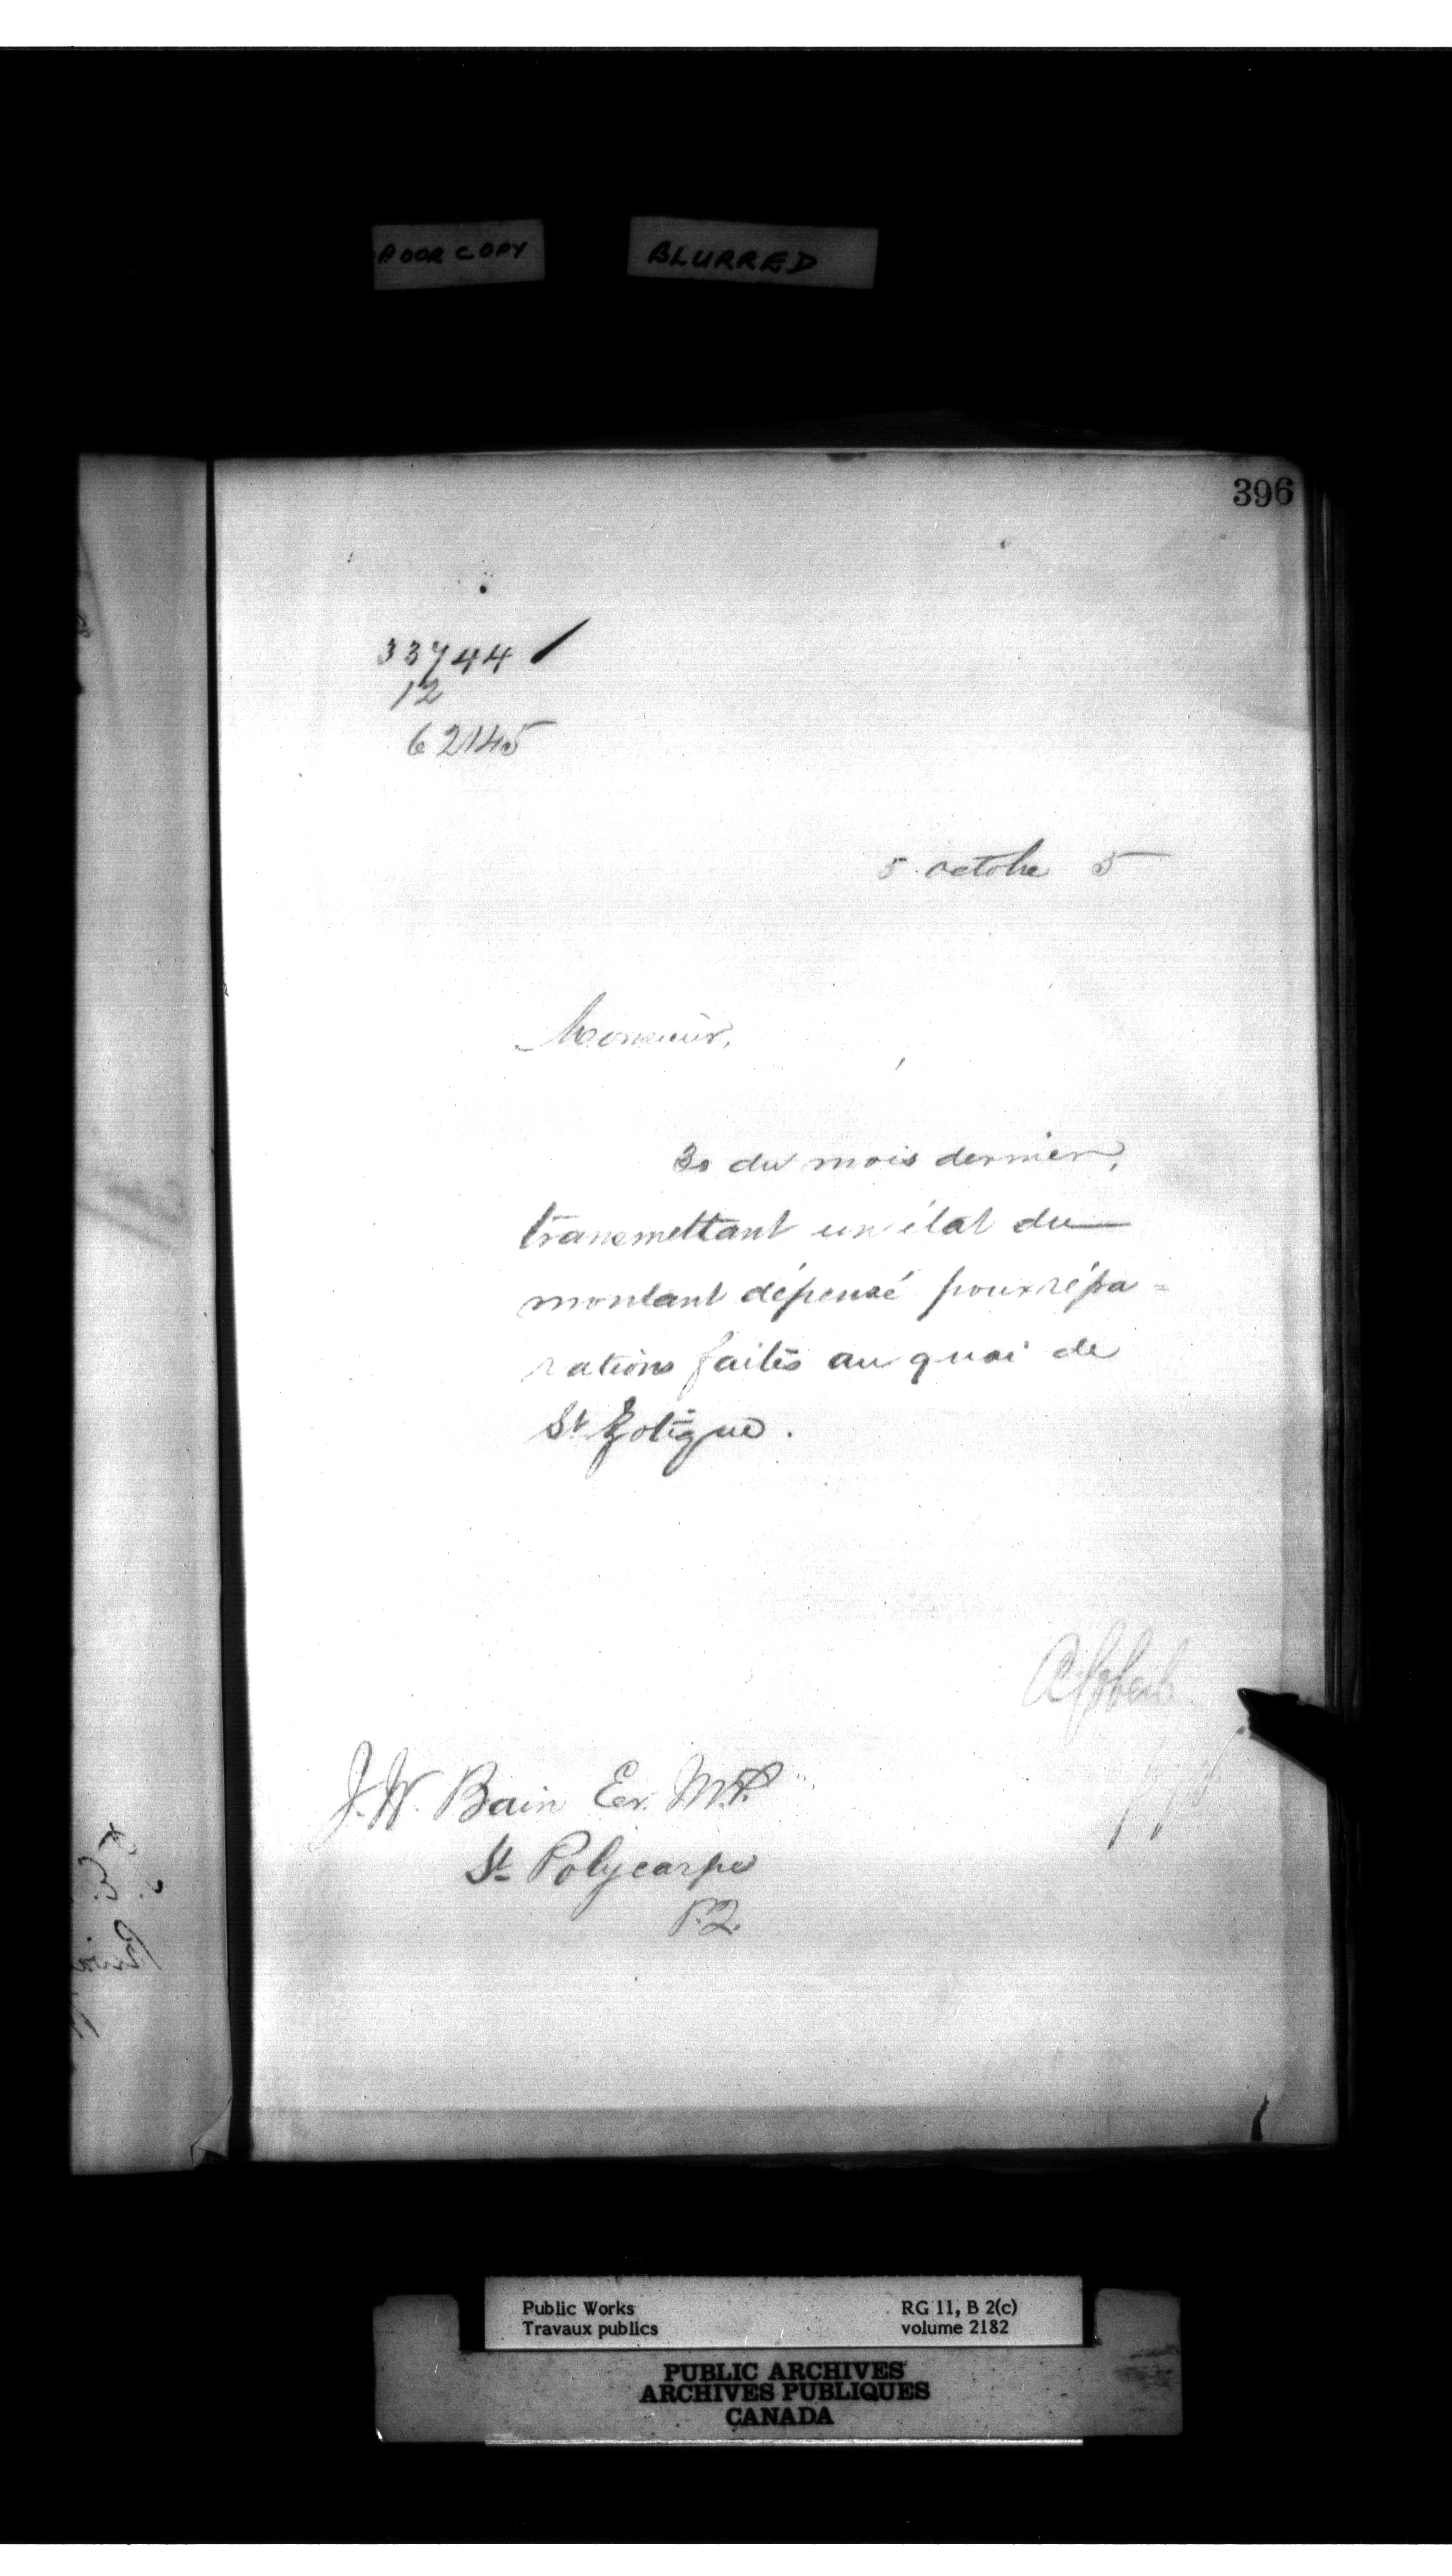 POOR COPY
BLURRED
396
33744
12
62145
5 octobre 5
Monsieur,
30 du mois dernier,
transmettant un état du
montant dépensé pour répa=
rations faites au quai de
St Zotique.
J. W. Bain Er. M.P.
St Polycarpe
P.Q.
Public Works
Travaux publics
RG 11, B 2(c)
volume 2182
PUBLIC ARCHIVES
ARCHIVES PUBLIQUES
CANADA